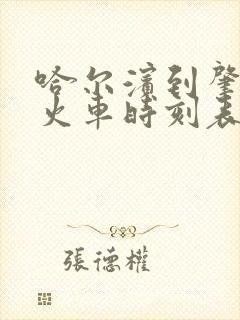 哈尔滨到肇
火车时刻表
張德權